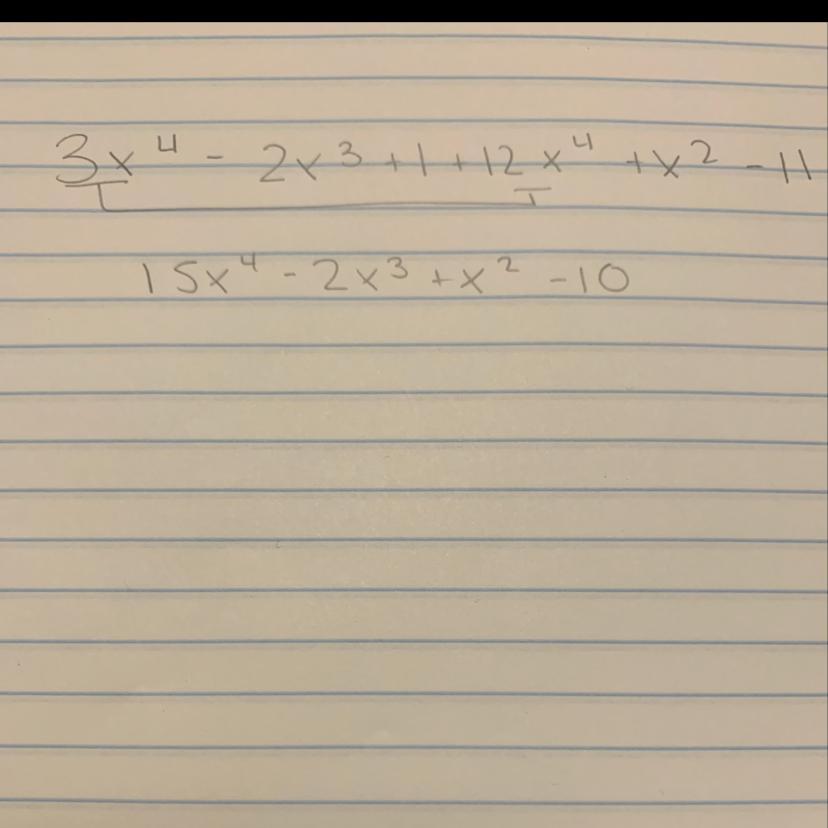 3x⁴ - 2x³ + 1 + 12x⁴ + x² - 11
15x⁴ - 2x³ + x² - 10